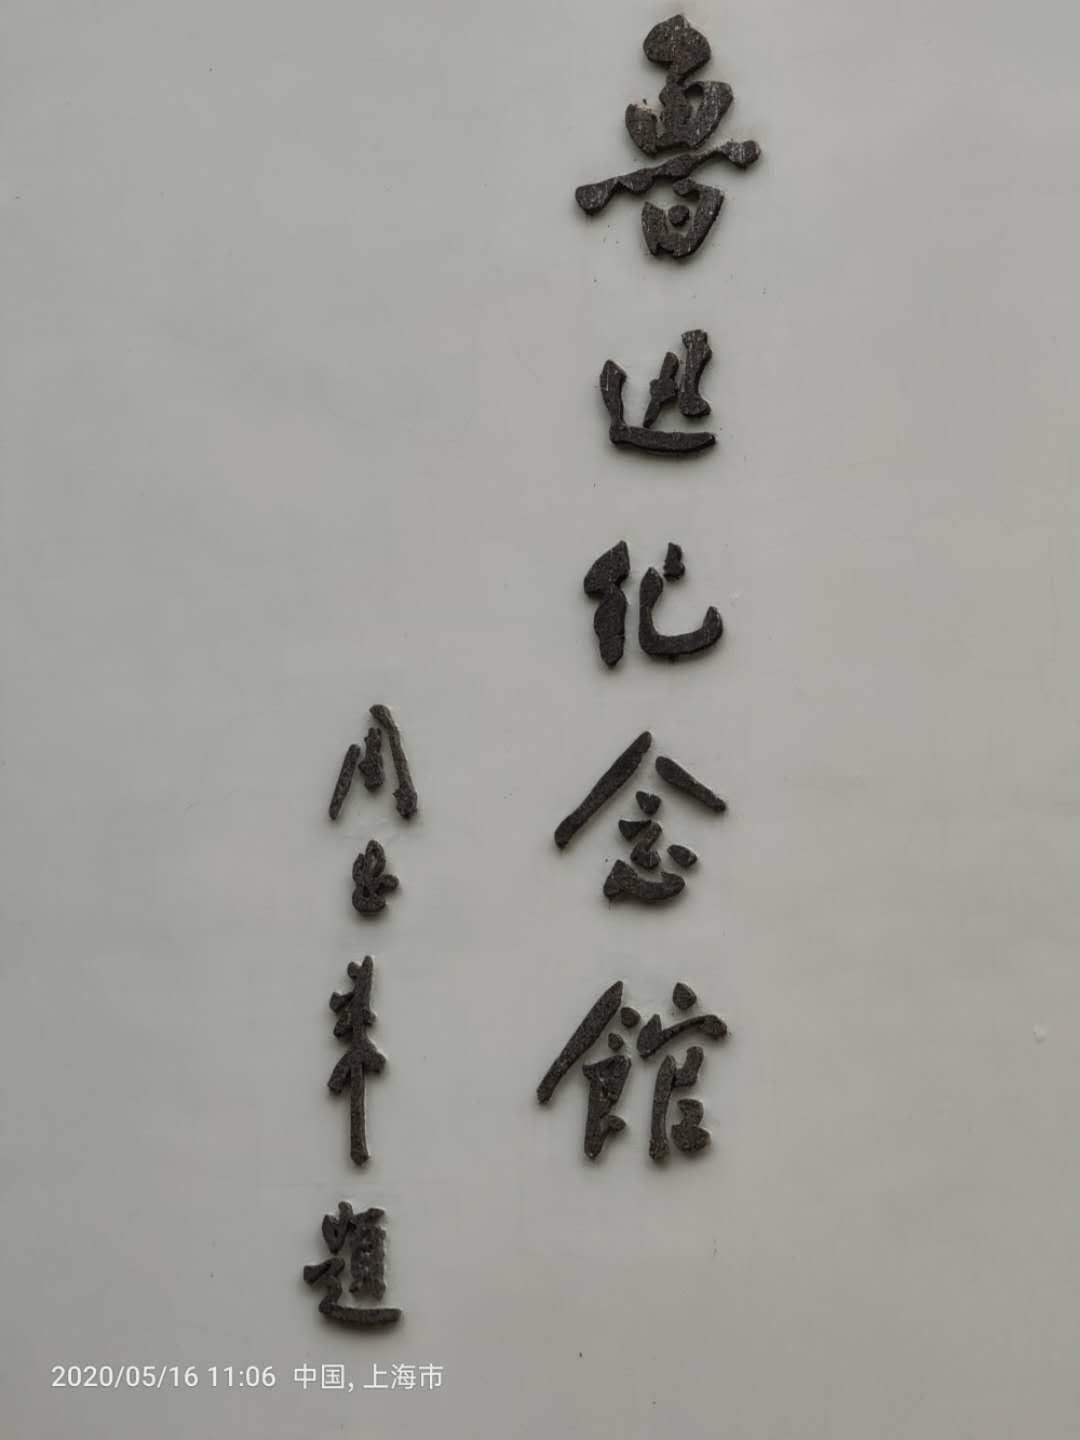 魯迅纪念館
周恩来題
2020/05/16 11:06 中国, 上海市